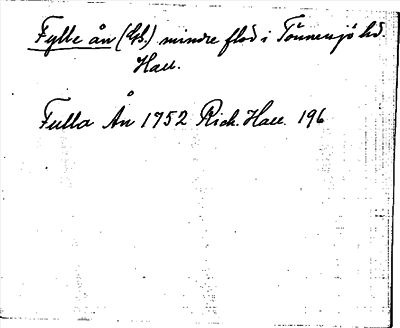 Fylle ån (Gs.) mindre flod i Tönnersjö hd.
Hall.
Fulla Ån 1752 Rich. Hall. 196